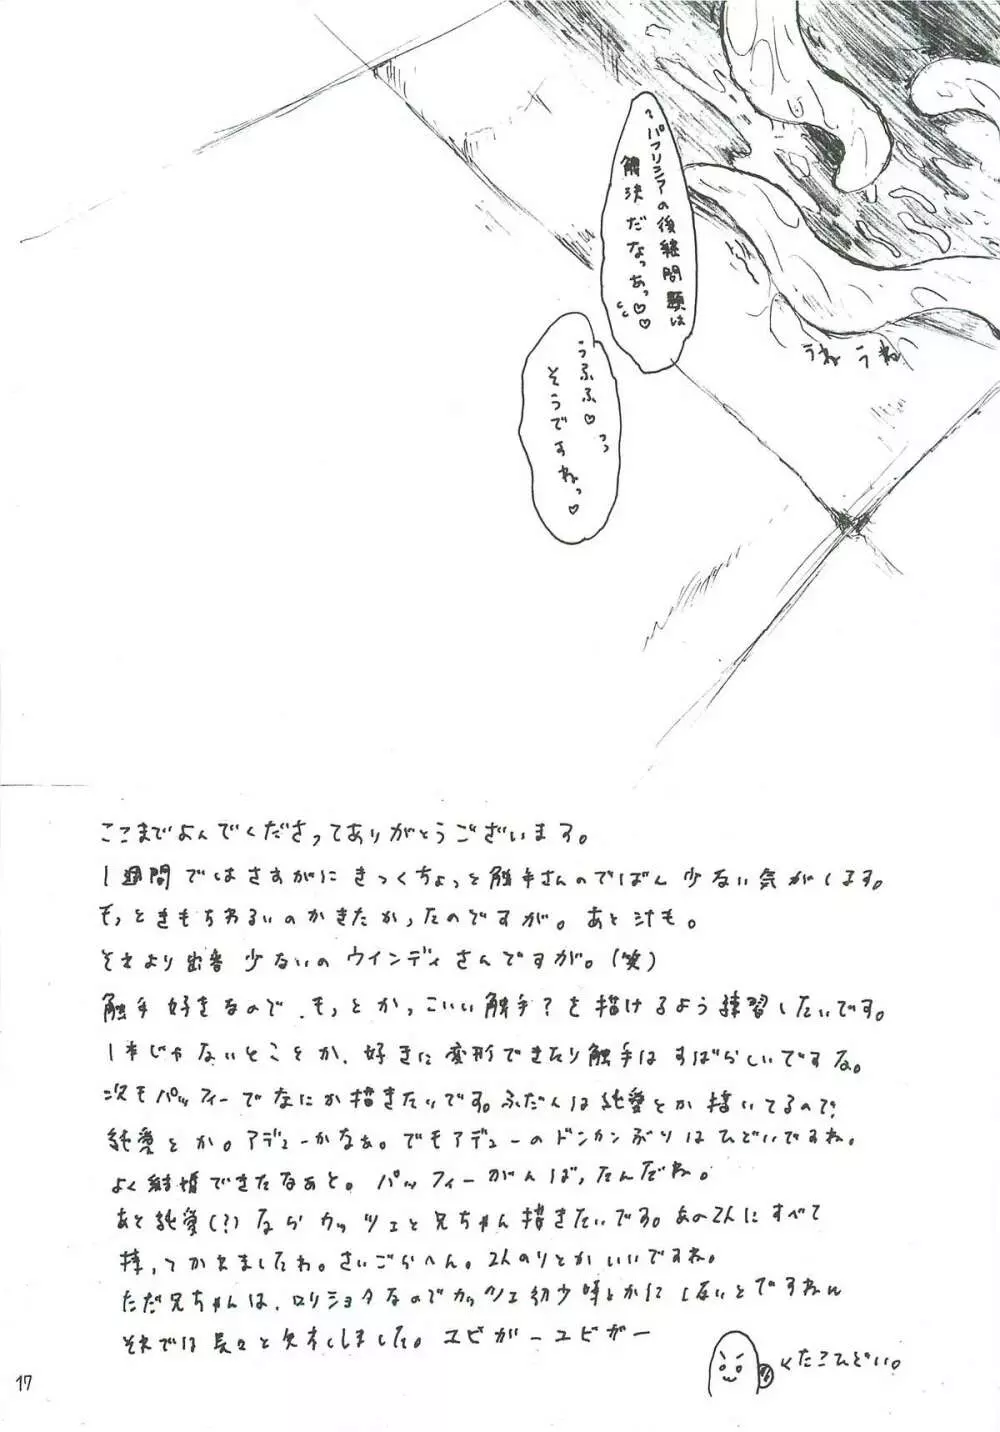 パフリシアの後継問題は
解決だなっあっ♡♡
うふふ♡
そうですねっ♡
うね うね
ここまでよんでくださってありがとうございます。
1週間ではさすがにきつくちょっと触手さんのでばん少ない気がします。
もっときもちわるいのかきたかったのですが。あと汁も。
それより出番少ないのウインディさんですが。(笑)
触手好きなので、もっとかっこいい触手?を描けるよう練習したいです。
1本じゃないとことか、好きに変形できたり触手はすばらしいですな。
次もパッフィーでなにか描きたいです。ふだんは純愛とか描いてるので
純愛とか。アデューかなぁ。でもアデューのドンカンぶりはひどいですね。
よく結婚できたなあと。パッフィーがんばったんだね。
あと純愛(?)ならカッツェと兄ちゃん描きたいです。あの2人にすべて
持ってかれましたわ。さいごらへん。2人のりとかいいですね。
ただ兄ちゃんは、ロリショタなのでカッツェ幼少時とかにしないとですねw
それでは長々と失礼しました。ユビガーユビガー
<たこひどい。
17